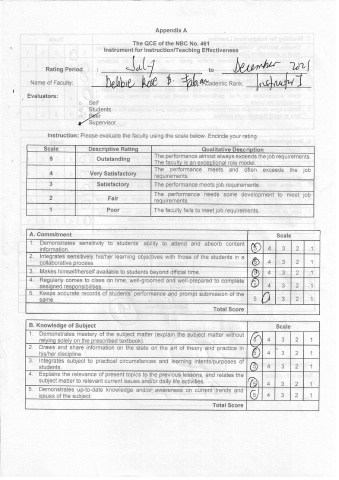 Appendix A
The QCE of the NBC No. 461
Instrument for Instruction/Teaching Effectiveness
Rating Period : July to December 2021
Name of Faculty: Debbie Rose B. Academic Rank: Instructor I
Evaluators:
Self
Students
Peer
Supervisor
Instruction: Please evaluate the faculty using the scale below. Encircle your rating
Scale Descriptive Rating Qualitative Description
5 Outstanding The performance almost always exceeds the job requirements. The faculty is an exceptional role model.
4 Very Satisfactory The performance meets and often exceeds the job requirements.
3 Satisfactory The performance meets job requirements.
2 Fair The performance needs some development to meet job requirements.
1 Poor The faculty fails to meet job requirements.
A. Commitment Scale
1. Demonstrates sensitivity to students' ability to attend and absorb content information. 5 4 3 2 1
2. Integrates sensitively his/her learning objectives with those of the students in a collaborative process. 5 4 3 2 1
3. Makes himself/herself available to students beyond official time. 5 4 3 2 1
4. Regularly comes to class on time, well-groomed and well-prepared to complete assigned responsibilities. 5 4 3 2 1
5. Keeps accurate records of students' performance and prompt submission of the same. 5 4 3 2 1
Total Score
B. Knowledge of Subject Scale
1. Demonstrates mastery of the subject matter (explain the subject matter without relying solely on the prescribed textbook). 5 4 3 2 1
2. Draws and share information on the state on the art of theory and practice in his/her discipline. 5 4 3 2 1
3. Integrates subject to practical circumstances and learning intents/purposes of students. 5 4 3 2 1
4. Explains the relevance of present topics to the previous lessons, and relates the subject matter to relevant current issues and/or daily life activities. 5 4 3 2 1
5. Demonstrates up-to-date knowledge and/or awareness on current trends and issues of the subject. 5 4 3 2 1
Total Score